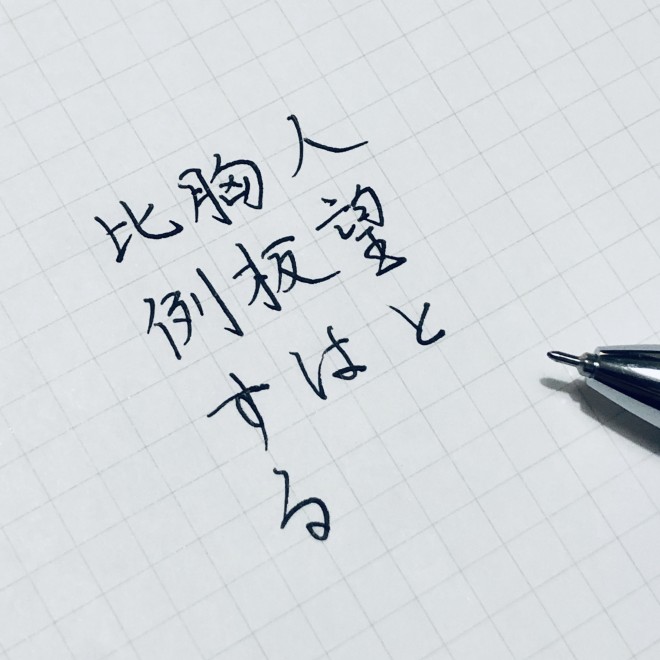 人望と
胸板は
比例する